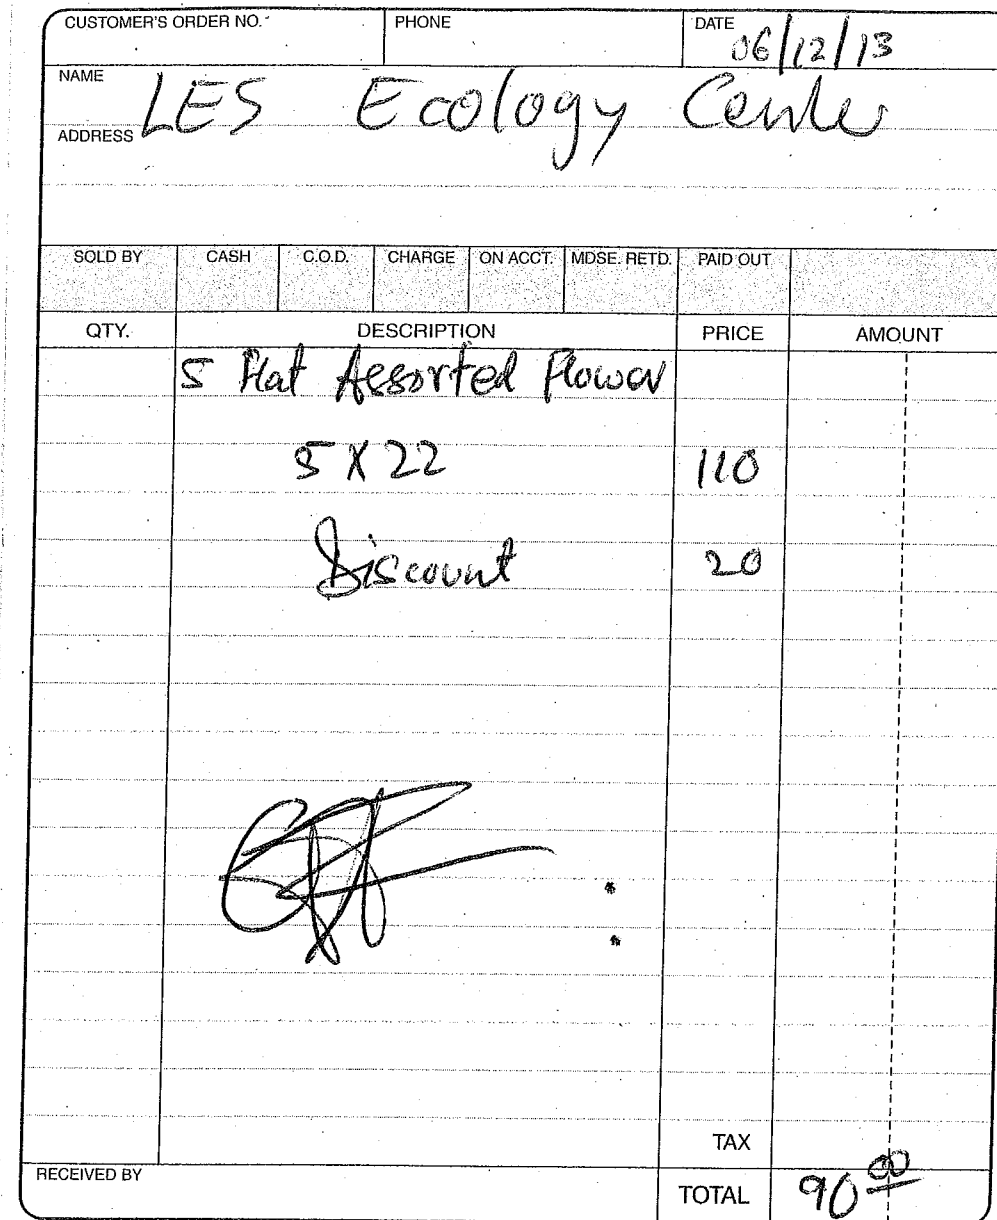 CUSTOMER'S ORDER NO. PHONE DATE 06/12/13
NAME LES Ecology Center
ADDRESS
SOLD BY CASH C.O.D. CHARGE ON ACCT. MDSE. RETD. PAID OUT
QTY. DESCRIPTION PRICE AMOUNT
5 Flat Assorted Flower
5 X 22 110
Discount 20
TAX
RECEIVED BY
TOTAL 90 00